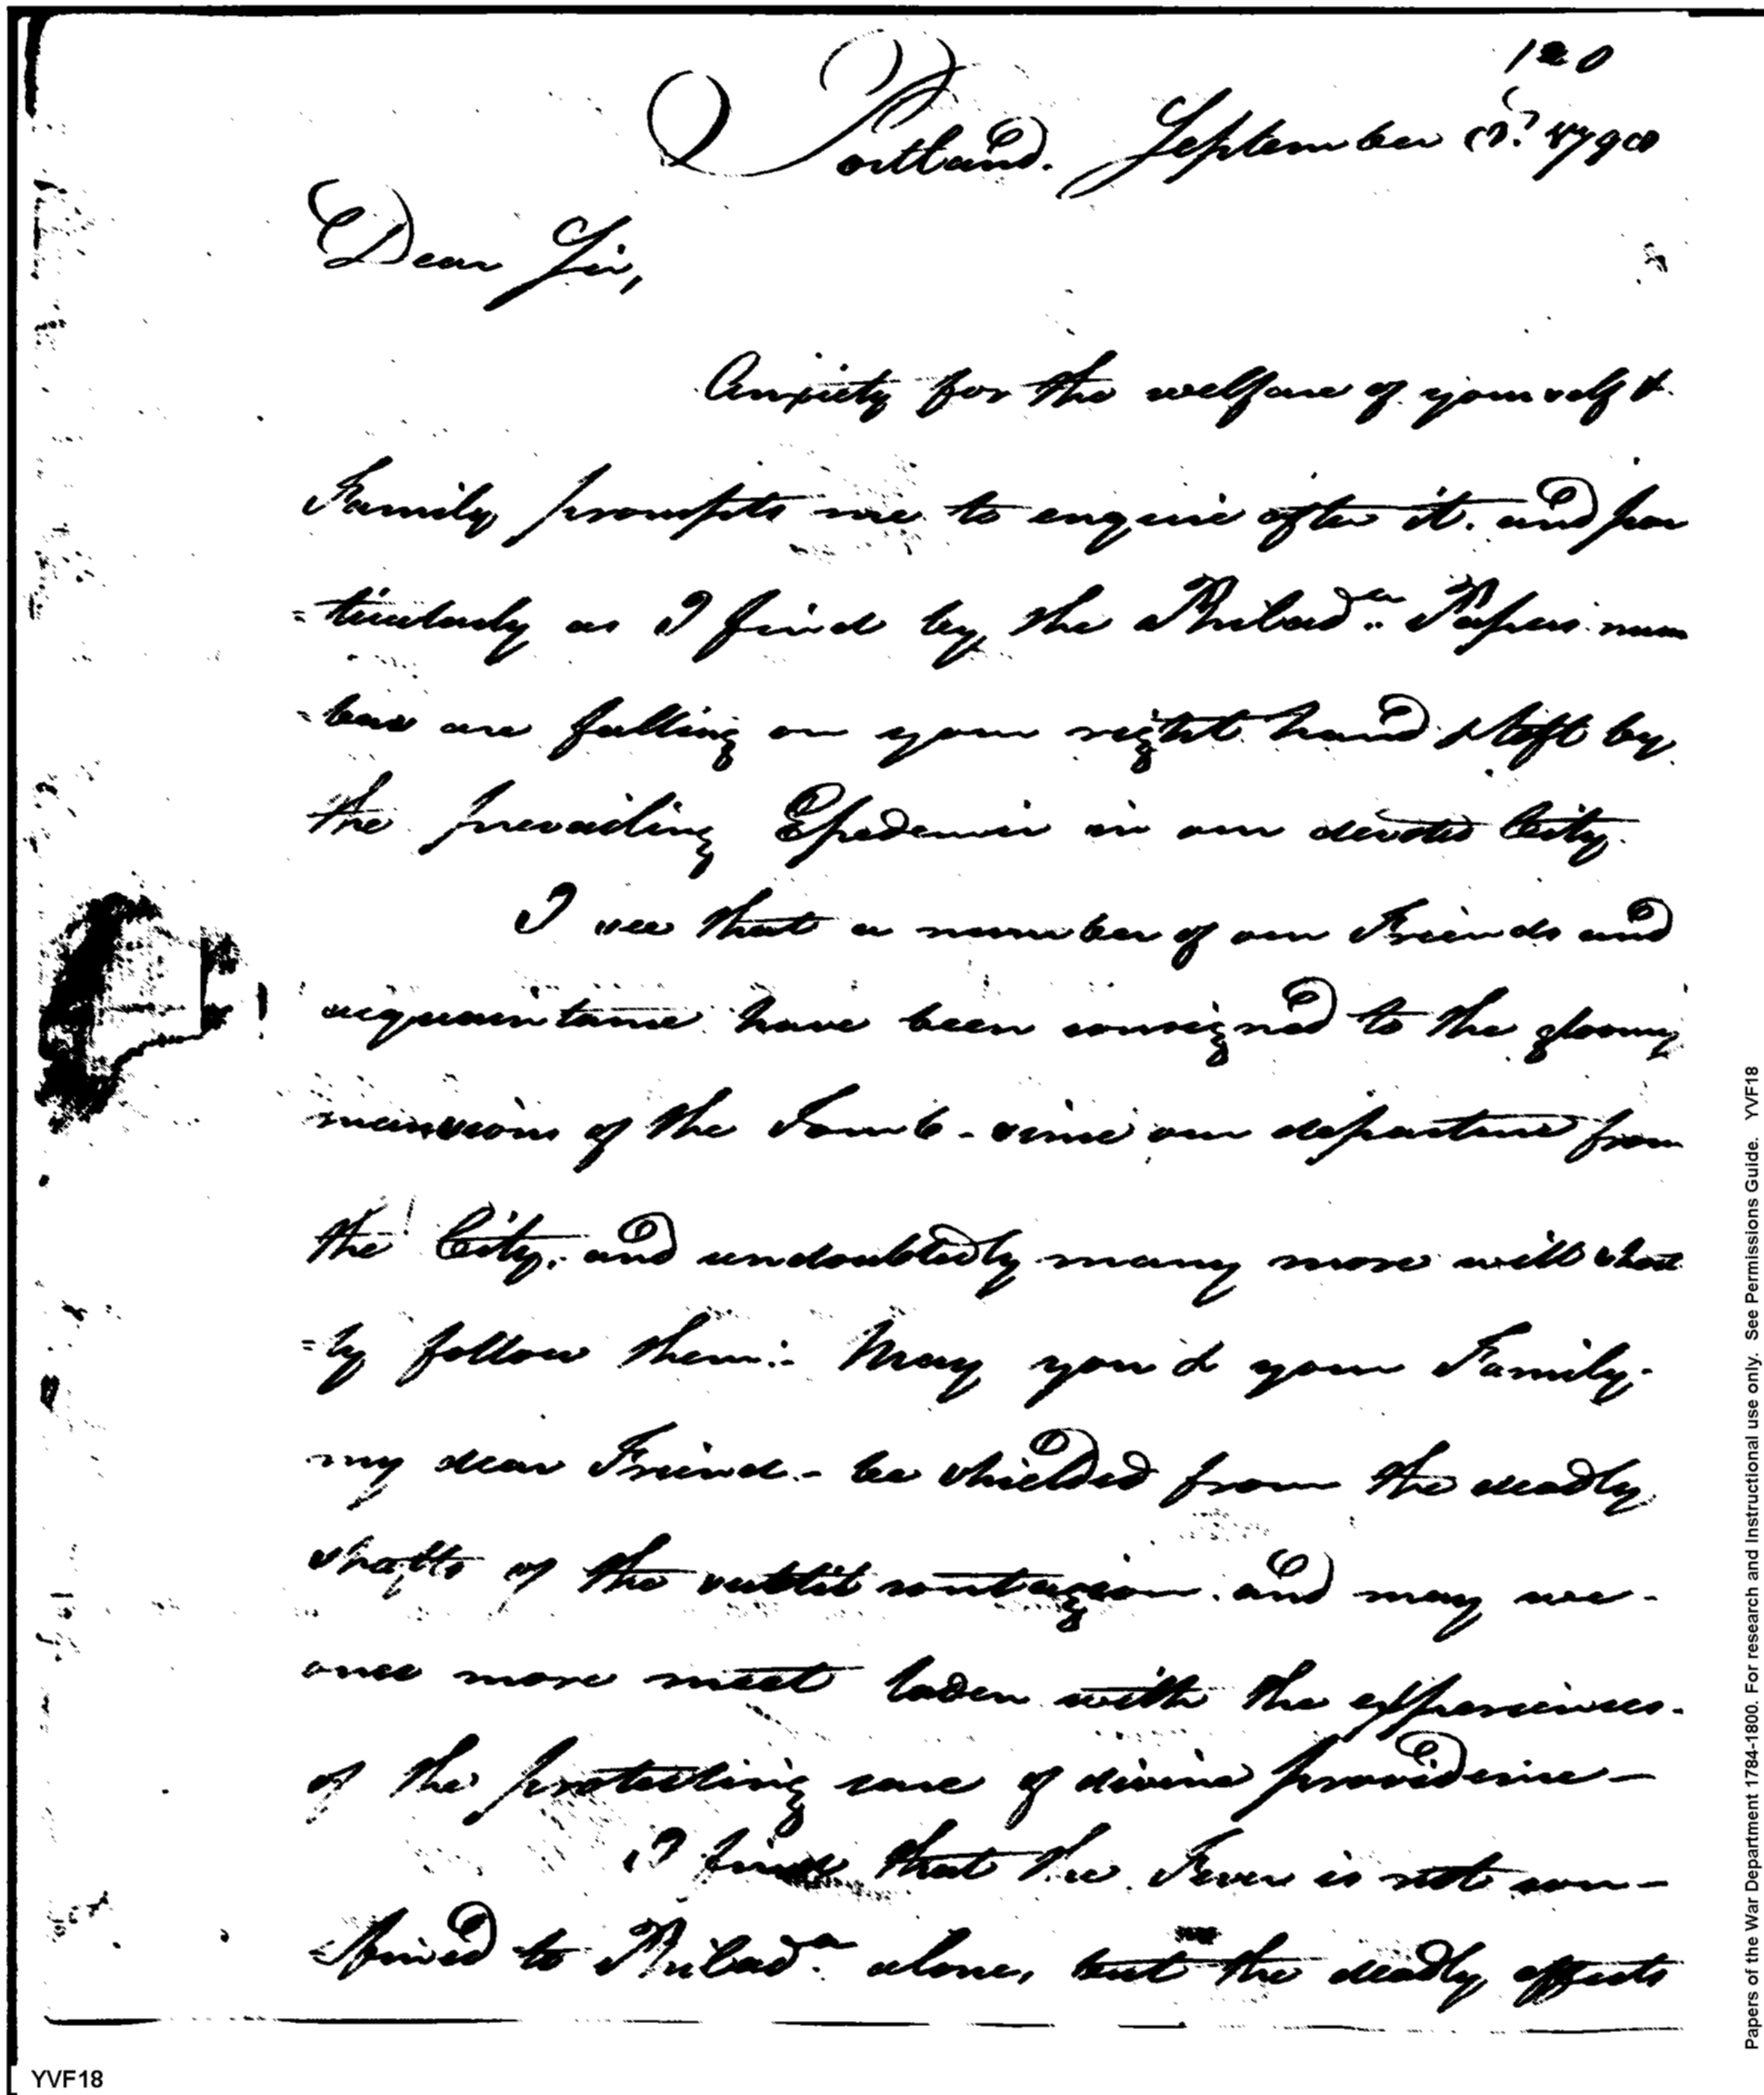 120
Portland. September 1798
Dear Sir,
Anxiety for the welfare of yourself &
Family prompts me to enquire after it. and par
=ticularly as I find by the Philad.a Papers num
=bers are falling on your right hand & left by
the prevailing Epedemic in our devoted City.
I see that a number of our Friends and
acquaintance have been consigned to the gloomy
mansions of the Tomb - since our departure from
the City. and undoubtedly many more will short
=ly follow them:- May you & your Family.
my dear Friend - be shielded from the deadly
shafts of the subtil contagion. and may we -
once more meet laden with the experiences -
of the protecting care of divine providence -
I find that the Fever is not con-
=fined to Philad.a alone, but the deadly effects
YVF18
Papers of the War Department 1784-1800. For research and Instructional use only. See Permissions Guide. YVF18